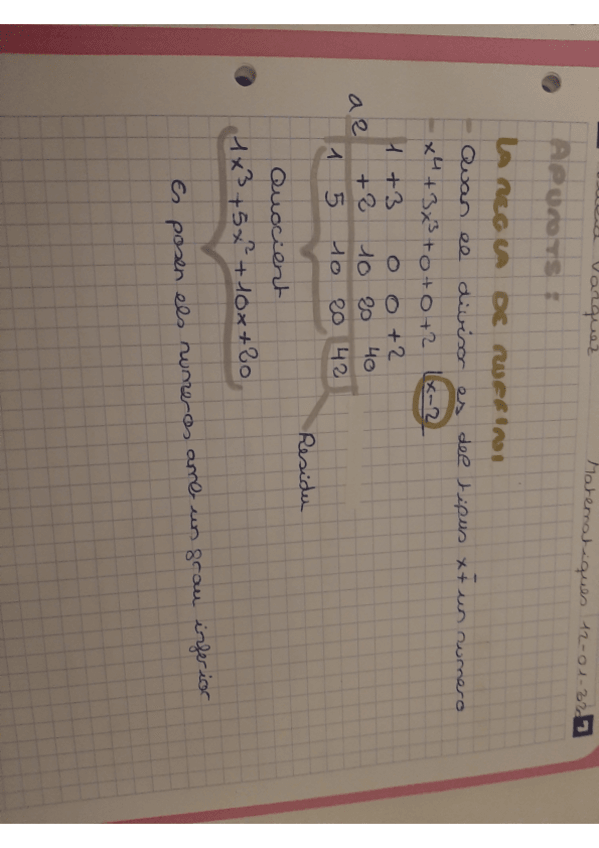 Vazquez Matematiques 12-01-22 7
APUNTS:
LA REGLA DE RUFFINI
- Quan el divisor es del tipus x± un numero
- x⁴+3x³+0+0+2 |x-2
1 +3 0 0 +2
a 2 +2 10 20 40
1 5 10 20 42
Residu
Quocient
1x³+5x²+10x+20
Es posen els numeros amb un grau inferior